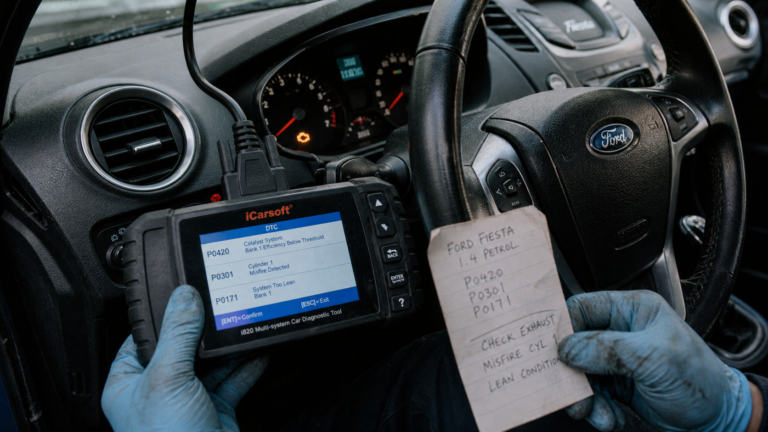 Fiesta
Ford
iCarsoft®
DTC
P0420
Catalyst System
Bank 1 Efficiency Below Threshold
P0301
Cylinder 1
Misfire Detected
P0171
System Too Lean
Bank 1
[ENT]= Confirm
[ESC]= Exit
i820 Multi-system Car Diagnostic Tool
BACK
ENTER
?
FORD FIESTA
1.4 PETROL
P0420
P0301
P0171
CHECK EXHAUST
MISFIRE CYL 1
LEAN CONDITION